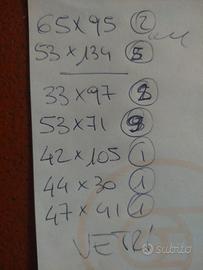 65x95 2
cm
53x134 5
33x97
53x71
42x105 1
44x30 1
47x41 1
VETRI
subito